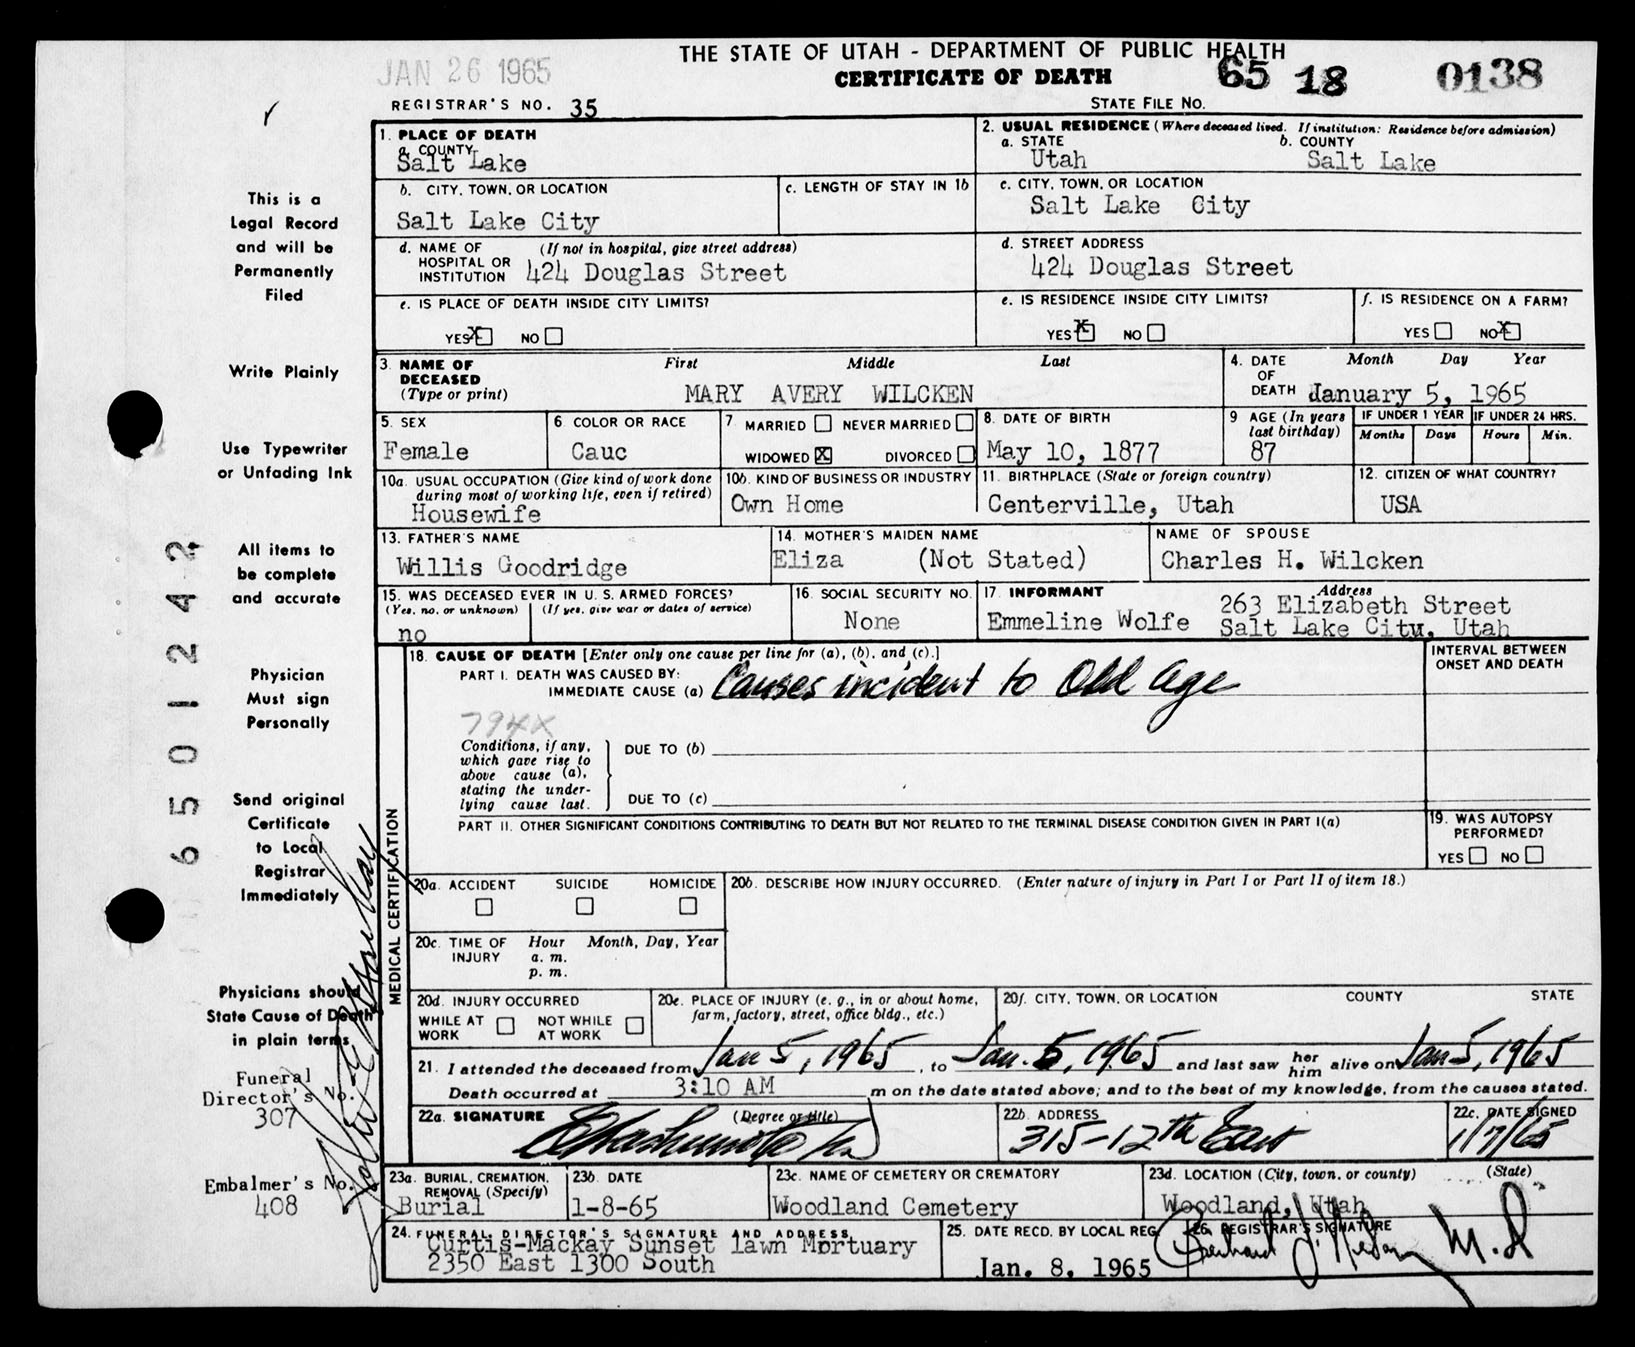 THE STATE OF UTAH - DEPARTMENT OF PUBLIC HEALTH
JAN 26 1965
CERTIFICATE OF DEATH
65 18 0138
REGISTRAR'S NO. 35
STATE FILE NO.
1. PLACE OF DEATH
a. COUNTY
Salt Lake
2. USUAL RESIDENCE (Where deceased lived. If institution: Residence before admission)
a. STATE
Utah
b. COUNTY
Salt Lake
b. CITY, TOWN, OR LOCATION
Salt Lake City
c. LENGTH OF STAY IN 1b
c. CITY, TOWN, OR LOCATION
Salt Lake City
d. NAME OF HOSPITAL OR INSTITUTION
(If not in hospital, give street address)
424 Douglas Street
d. STREET ADDRESS
424 Douglas Street
e. IS PLACE OF DEATH INSIDE CITY LIMITS?
YES X NO
e. IS RESIDENCE INSIDE CITY LIMITS?
YES X NO
f. IS RESIDENCE ON A FARM?
YES NO X
3. NAME OF DECEASED
(Type or print)
First Middle Last
MARY AVERY WILCKEN
4. DATE OF DEATH
Month Day Year
January 5, 1965
5. SEX
Female
6. COLOR OR RACE
Cauc
7. MARRIED NEVER MARRIED
WIDOWED X DIVORCED
8. DATE OF BIRTH
May 10, 1877
9 AGE (In years last birthday)
87
IF UNDER 1 YEAR
Months Days
IF UNDER 24 HRS.
Hours Min.
10a. USUAL OCCUPATION (Give kind of work done during most of working life, even if retired)
Housewife
10b. KIND OF BUSINESS OR INDUSTRY
Own Home
11. BIRTHPLACE (State or foreign country)
Centerville, Utah
12. CITIZEN OF WHAT COUNTRY?
USA
13. FATHER'S NAME
Willis Goodridge
14. MOTHER'S MAIDEN NAME
Eliza (Not Stated)
NAME OF SPOUSE
Charles H. Wilcken
15. WAS DECEASED EVER IN U. S. ARMED FORCES?
(Yes, no, or unknown) (If yes, give war or dates of service)
no
16. SOCIAL SECURITY NO.
None
17. INFORMANT
Emmeline Wolfe
Address
263 Elizabeth Street
Salt Lake City, Utah
18. CAUSE OF DEATH [Enter only one cause per line for (a), (b), and (c).]
PART I. DEATH WAS CAUSED BY:
IMMEDIATE CAUSE (a) Causes incident to Old age
INTERVAL BETWEEN ONSET AND DEATH
794X
Conditions, if any,
which gave rise to
above cause (a),
stating the under-
lying cause last.
DUE TO (b)
DUE TO (c)
PART II. OTHER SIGNIFICANT CONDITIONS CONTRIBUTING TO DEATH BUT NOT RELATED TO THE TERMINAL DISEASE CONDITION GIVEN IN PART I(a)
19. WAS AUTOPSY PERFORMED?
YES NO
MEDICAL CERTIFICATION
20a. ACCIDENT SUICIDE HOMICIDE
20b. DESCRIBE HOW INJURY OCCURRED. (Enter nature of injury in Part I or Part II of item 18.)
20c. TIME OF INJURY
Hour Month, Day, Year
a. m.
p. m.
20d. INJURY OCCURRED
WHILE AT WORK NOT WHILE AT WORK
20e. PLACE OF INJURY (e. g., in or about home, farm, factory, street, office bldg., etc.)
20f. CITY, TOWN, OR LOCATION COUNTY STATE
21. I attended the deceased from Jan 5, 1965, to Jan. 5, 1965 and last saw her him alive on Jan 5, 1965
Death occurred at 3:10 AM m on the date stated above; and to the best of my knowledge, from the causes stated.
22a. SIGNATURE (Degree or title)
22b. ADDRESS
315-12th East
22c. DATE SIGNED
1/7/65
23a. BURIAL, CREMATION, REMOVAL (Specify)
Burial
23b. DATE
1-8-65
23c. NAME OF CEMETERY OR CREMATORY
Woodland Cemetery
23d. LOCATION (City, town, or county) (State)
Woodland, Utah
24. FUNERAL DIRECTOR'S SIGNATURE AND ADDRESS
Curtis-Mackay Sunset lawn Mortuary
2350 East 1300 South
25. DATE RECD. BY LOCAL REG.
Jan. 8, 1965
26. REGISTRAR'S SIGNATURE
M.D
This is a
Legal Record
and will be
Permanently
Filed
Write Plainly
Use Typewriter
or Unfading Ink
All items to
be complete
and accurate
Physician
Must sign
Personally
Send original
Certificate
to Local
Registrar
Immediately
Physicians should
State Cause of Death
in plain terms
Funeral
Director's No.
307
Embalmer's No.
408
6501242